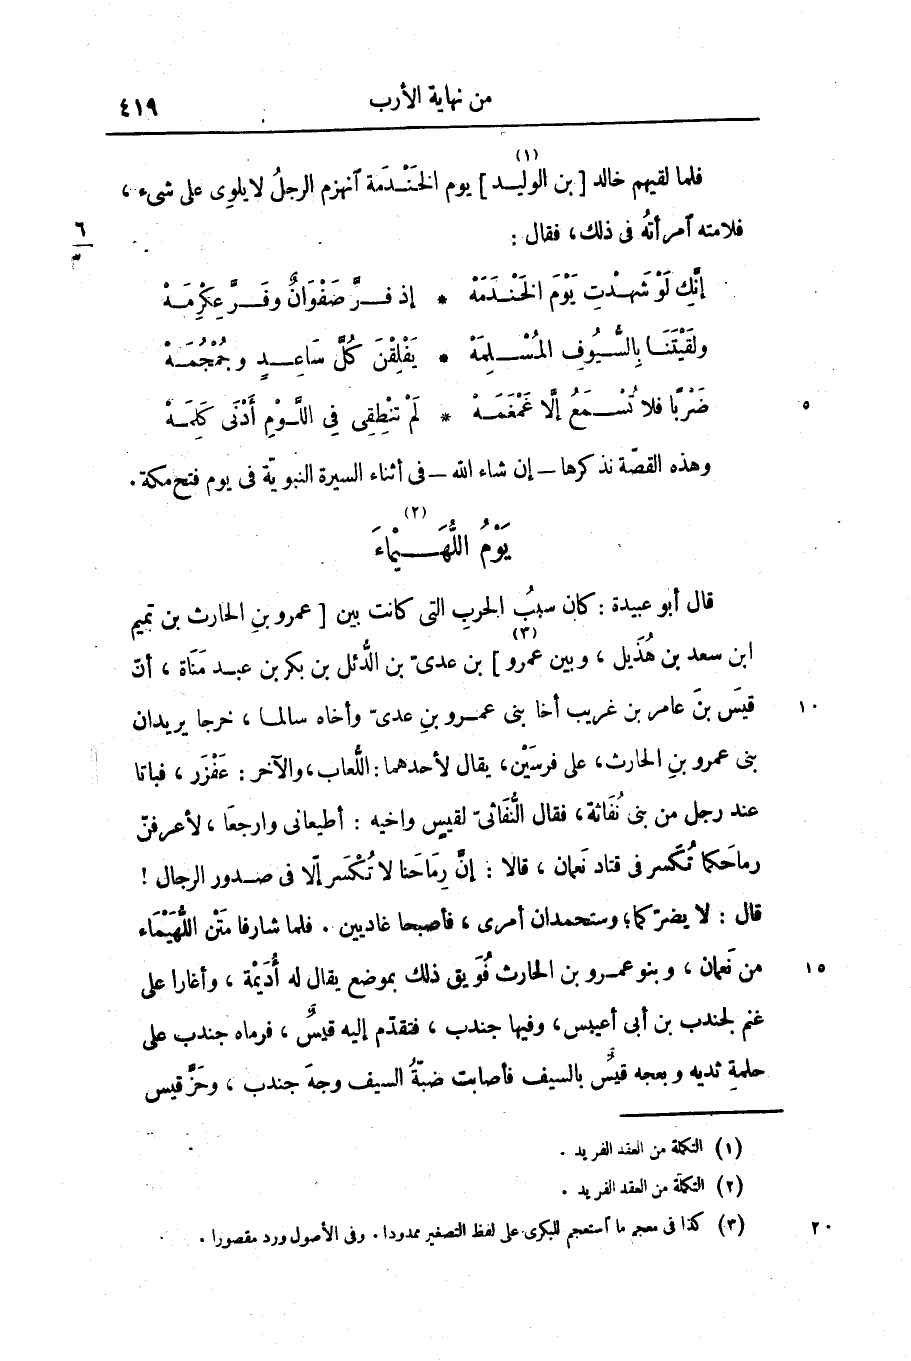 من نهاية الأرب ٤١٩
فلما لقيهم خالد [ بن الوليد ] (١) يوم الخَنْدَمَة ٱنهزم الرجلُ لا يلوِى على شىء ،
فلامته ٱمرأتُه فى ذلك، فقال :
٦
٣
إنَّكِ لَوْ شَهِدْتِ يَوْمَ الخَنْدَمَهْ * إذ فرَّ صَفْوَانٌ وفَرَّ عِكْرِمَهْ
ولَقِيَتْنَا بِالسُّيُوفِ المُسْلِمَهْ * يَفْلِقْنَ كُلَّ سَاعِدٍ وجُمْجُمَهْ
ضَرْبًا فلا تُسْمَعُ إلَّا غَمْغَمَهْ * لَمْ تَنْطِقِى فِى اللَّوْمِ أَدْنَى كَلِمَهْ ٥
وهذه القصّة نذكرها — إن شاء الله — فى أثناء السيرة النبويّة فى يوم فتح مكة .
يَوْمُ اللُّهَيْمَاءَ (٢)
قال أبو عبيدة : كان سببُ الحربِ التى كانت بين [ عمرو بنِ الحارث بن تميم
ابن سعد بن هُذَيل ، وبين عمرو ] (٣) بن عدىّ بن الدُّئل بن بكر بن عبد مَنَاة ، أنّ
قيسَ بنَ عامر بن غريب أخا بنى عمرو بنِ عدىّ وأخاه سالما ، خرجا يريدان ١٠
بنى عمرو بنِ الحارث، على فرسَيْن، يقال لأحدهما : اللُّعاب، والآخر : عَفْزَر ، فباتا
عند رجل من بنى نُفَاثة، فقال النُّفَاثىّ لقيسٍ واخيه : أطيعانى وارجعَا ، لأعرفنّ
رماحَكما تُكسر فى قتاد نَعمان ، قالا : إنَّ رِمَاحَنا لا تُكْسَر إلّا فى صدور الرجال !
قال : لا يضرّكما؛ وستحمدان أمرى ، فأصبحا غاديين . فلما شارفا مَتْن اللُّهَيْمَاء
من نَعمان ، وبنو عمرو بن الحارث فُوَيق ذلك بموضع يقال له أُدَيْمَة ، وأغارا على ١٥
غنم لجندب بن أبى أعيبس، وفيها جندب ، فتقدّم إليه قيسٌ ، فرماه جندب على
حلمةِ ثديه وبعجه قيسٌ بالسيف فأصابت ضبّةُ السيف وجهَ جندب ، وخَرَّ قيس
(١) التكملة من العقد الفريد .
(٢) التكملة من العقد الفريد .
(٣) كذا فى معجم ما ٱستعجم للبكرى على لفظ التصغير ممدودا . وفى الأصول ورد مقصورا . ٢٠